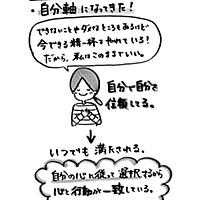 ・自分軸になってきた！
できないことやダメなところもあるけど
今できる精一杯はやれている！
だから、私はこのままでいい。
自分で自分を
信頼してる。
いつでも 満たされる。
自分の心に従って選択するから
心と行動が一致している。